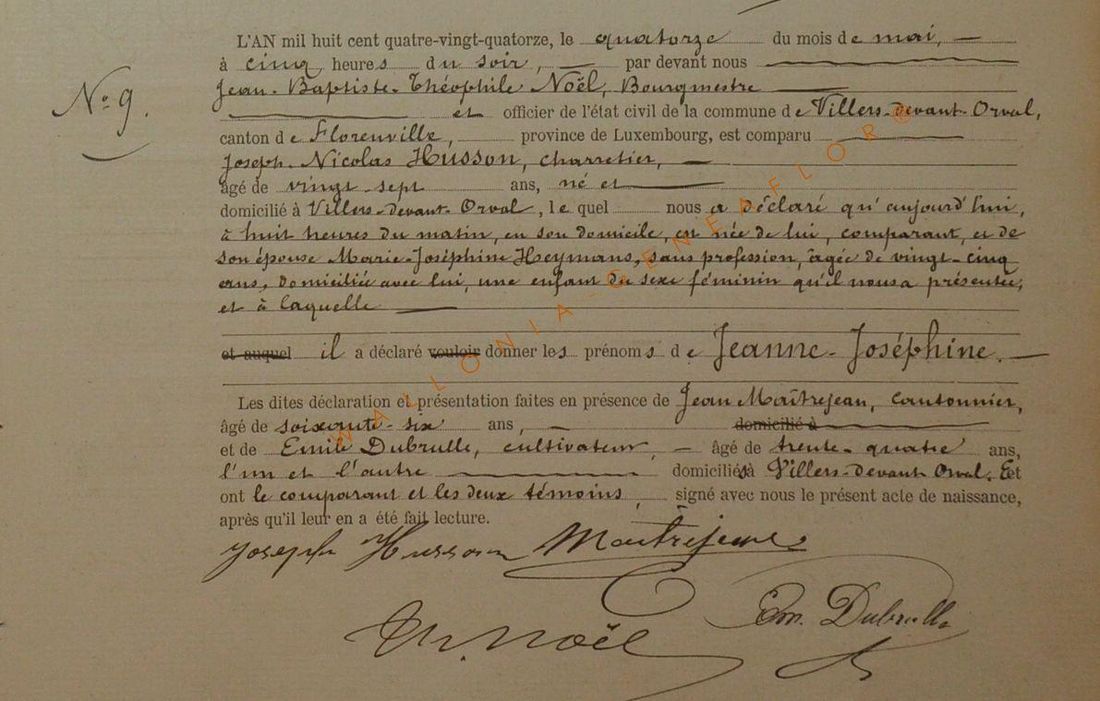 L'AN mil huit cent quatre-vingt-quatorze, le quatorze du mois de mai, —
à cinq heures du soir, — par devant nous
Jean-Baptiste-Théophile Noël, Bourgmestre
N° 9.
et officier de l'état civil de la commune de Villers-devant-Orval,
canton de Florenville, province de Luxembourg, est comparu
Joseph-Nicolas Husson, charretier, —
âgé de vingt-sept ans, né et
domicilié à Villers-devant-Orval, lequel nous a déclaré qu'aujourd'hui,
à huit heures du matin, en son domicile, est née de lui, comparant, et de
son épouse Marie-Joséphine Heymans, sans profession, âgée de vingt-cinq
ans, domiciliée avec lui, une enfant du sexe féminin qu'il nous a présentée,
et à laquelle —
et auquel il a déclaré vouloir donner les prénoms de Jeanne-Joséphine. —
Les dites déclaration et présentation faites en présence de Jean Maîtrejean, cantonnier,
âgé de soixante-six ans, — domicilié à
et de Emile Dubrulle, cultivateur, — âgé de trente-quatre ans,
l'un et l'autre domiciliés à Villers-devant-Orval. Et
ont le comparant et les deux témoins, signé avec nous le présent acte de naissance,
après qu'il leur en a été fait lecture.
Joseph Husson Maîtrejean
Em. Dubrulle
Th. Noël
WALLONIA-GENEAFLOR®